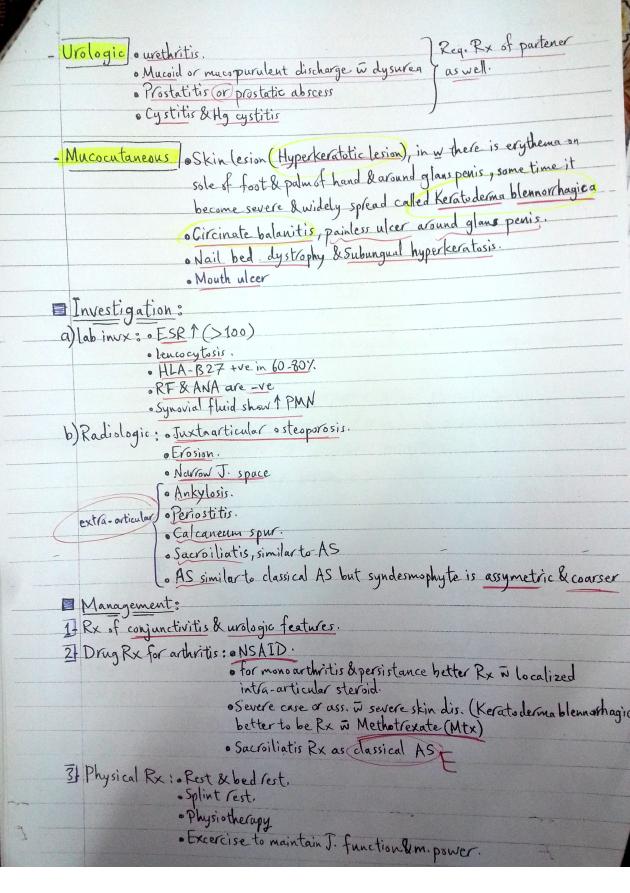 - Urologic • urethritis.
• Mucoid or mucopurulent discharge w̄ dysurea
• Prostatitis or prostatic abscess
• Cystitis & Hg cystitis
Req. Rx of partener
as well.
- Mucocutaneous • Skin lesion (Hyperkeratotic lesion), in w there is erythema on
sole of foot & palm of hand & around glans penis, some time it
become severe & widely spread called Keratoderma blennorrhagica
• Circinate balanitis, painless ulcer around glans penis.
• Nail bed dystrophy & Subungual hyperkeratosis.
• Mouth ulcer
Investigation:
a) lab invx: • ESR ↑ (>100)
• leucocytosis.
• HLA-B27 +ve in 60-80%.
• RF & ANA are -ve
• Synovial fluid show ↑ PMN
b) Radiologic: • Juxtaarticular osteoporosis.
• Erosion.
• Narrow J. space
extra-articular
• Ankylosis.
• Periostitis.
• Calcaneum spur.
• Sacroiliatis, similar to AS
• AS similar to classical AS but syndesmophyte is assymetric & coarser
Management:
1- Rx of conjunctivitis & urologic features.
2- Drug Rx for arthritis: • NSAID.
• for monoarthritis & persistance better Rx w̄ localized
intra-articular steroid.
• Severe case or ass. w̄ severe skin dis. (Keratoderma blennorrhagic
better to be Rx w̄ Methotrexate (Mtx)
• Sacroiliatis Rx as classical AS E
3- Physical Rx: • Rest & bed rest.
• Splint rest.
• Physiotherapy
• Excercise to maintain J. function & m. power.